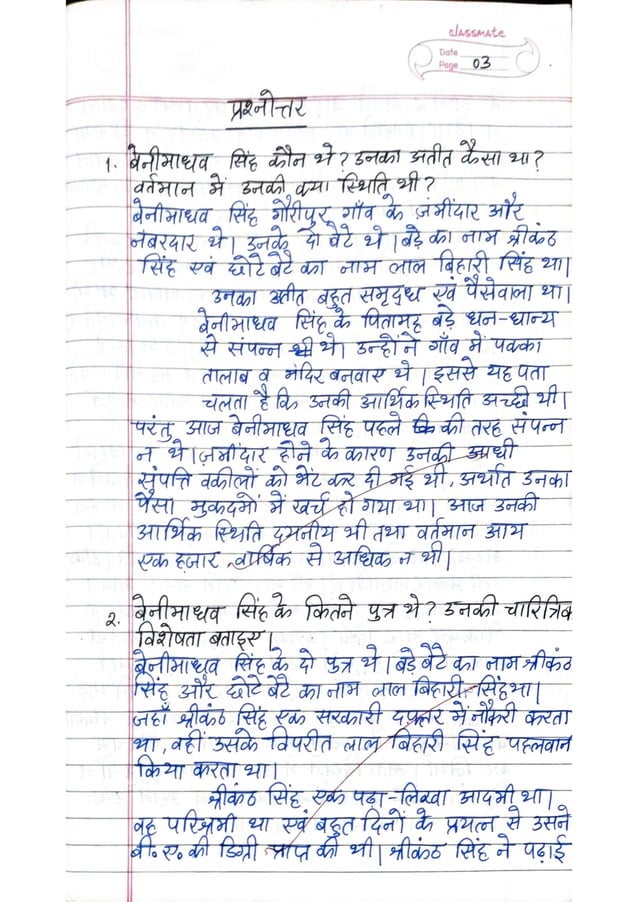 classmate
Date
Page 03
प्रश्नोत्तर
1. बेनीमाधव सिंह कौन थे? उनका अतीत कैसा था?
वर्तमान में उनकी क्या स्थिति थी?
बेनीमाधव सिंह गौरीपुर गाँव के ज़मींदार और
नंबरदार थे। उनके दो बेटे थे। बड़े का नाम श्रीकंठ
सिंह एवं छोटे बेटे का नाम लाल बिहारी सिंह था।
उनका अतीत बहुत समृद्ध एवं पैसेवाला था।
बेनीमाधव सिंह के पितामह बड़े धन-धान्य
से संपन्न थे। उन्होंने गाँव में पक्का
तालाब व मंदिर बनवाए थे। इससे यह पता
चलता है कि उनकी आर्थिक स्थिति अच्छी थी।
परंतु आज बेनीमाधव सिंह पहले की तरह संपन्न
न थे। ज़मींदार होने के कारण उनकी आधी
संपत्ति वकीलों को भेंट कर दी गई थी, अर्थात उनका
पैसा मुकदमों में खर्च हो गया था। आज उनकी
आर्थिक स्थिति दयनीय थी तथा वर्तमान आय
एक हज़ार वार्षिक से अधिक न थी।
2. बेनीमाधव सिंह के कितने पुत्र थे? उनकी चारित्रिक
विशेषता बताइए।
बेनीमाधव सिंह के दो पुत्र थे। बड़े बेटे का नाम श्रीकंठ
सिंह और छोटे बेटे का नाम लाल बिहारी सिंह था।
जहाँ श्रीकंठ सिंह एक सरकारी दफ़्तर में नौकरी करता
था, वहीं उसके विपरीत लाल बिहारी सिंह पहलवान
किया करता था।
श्रीकंठ सिंह एक पढ़ा-लिखा आदमी था।
वह परिश्रमी था एवं बहुत दिनों के प्रयत्न से उसने
बी॰ ए॰ की डिग्री प्राप्त की थी। श्रीकंठ सिंह ने पढ़ाई